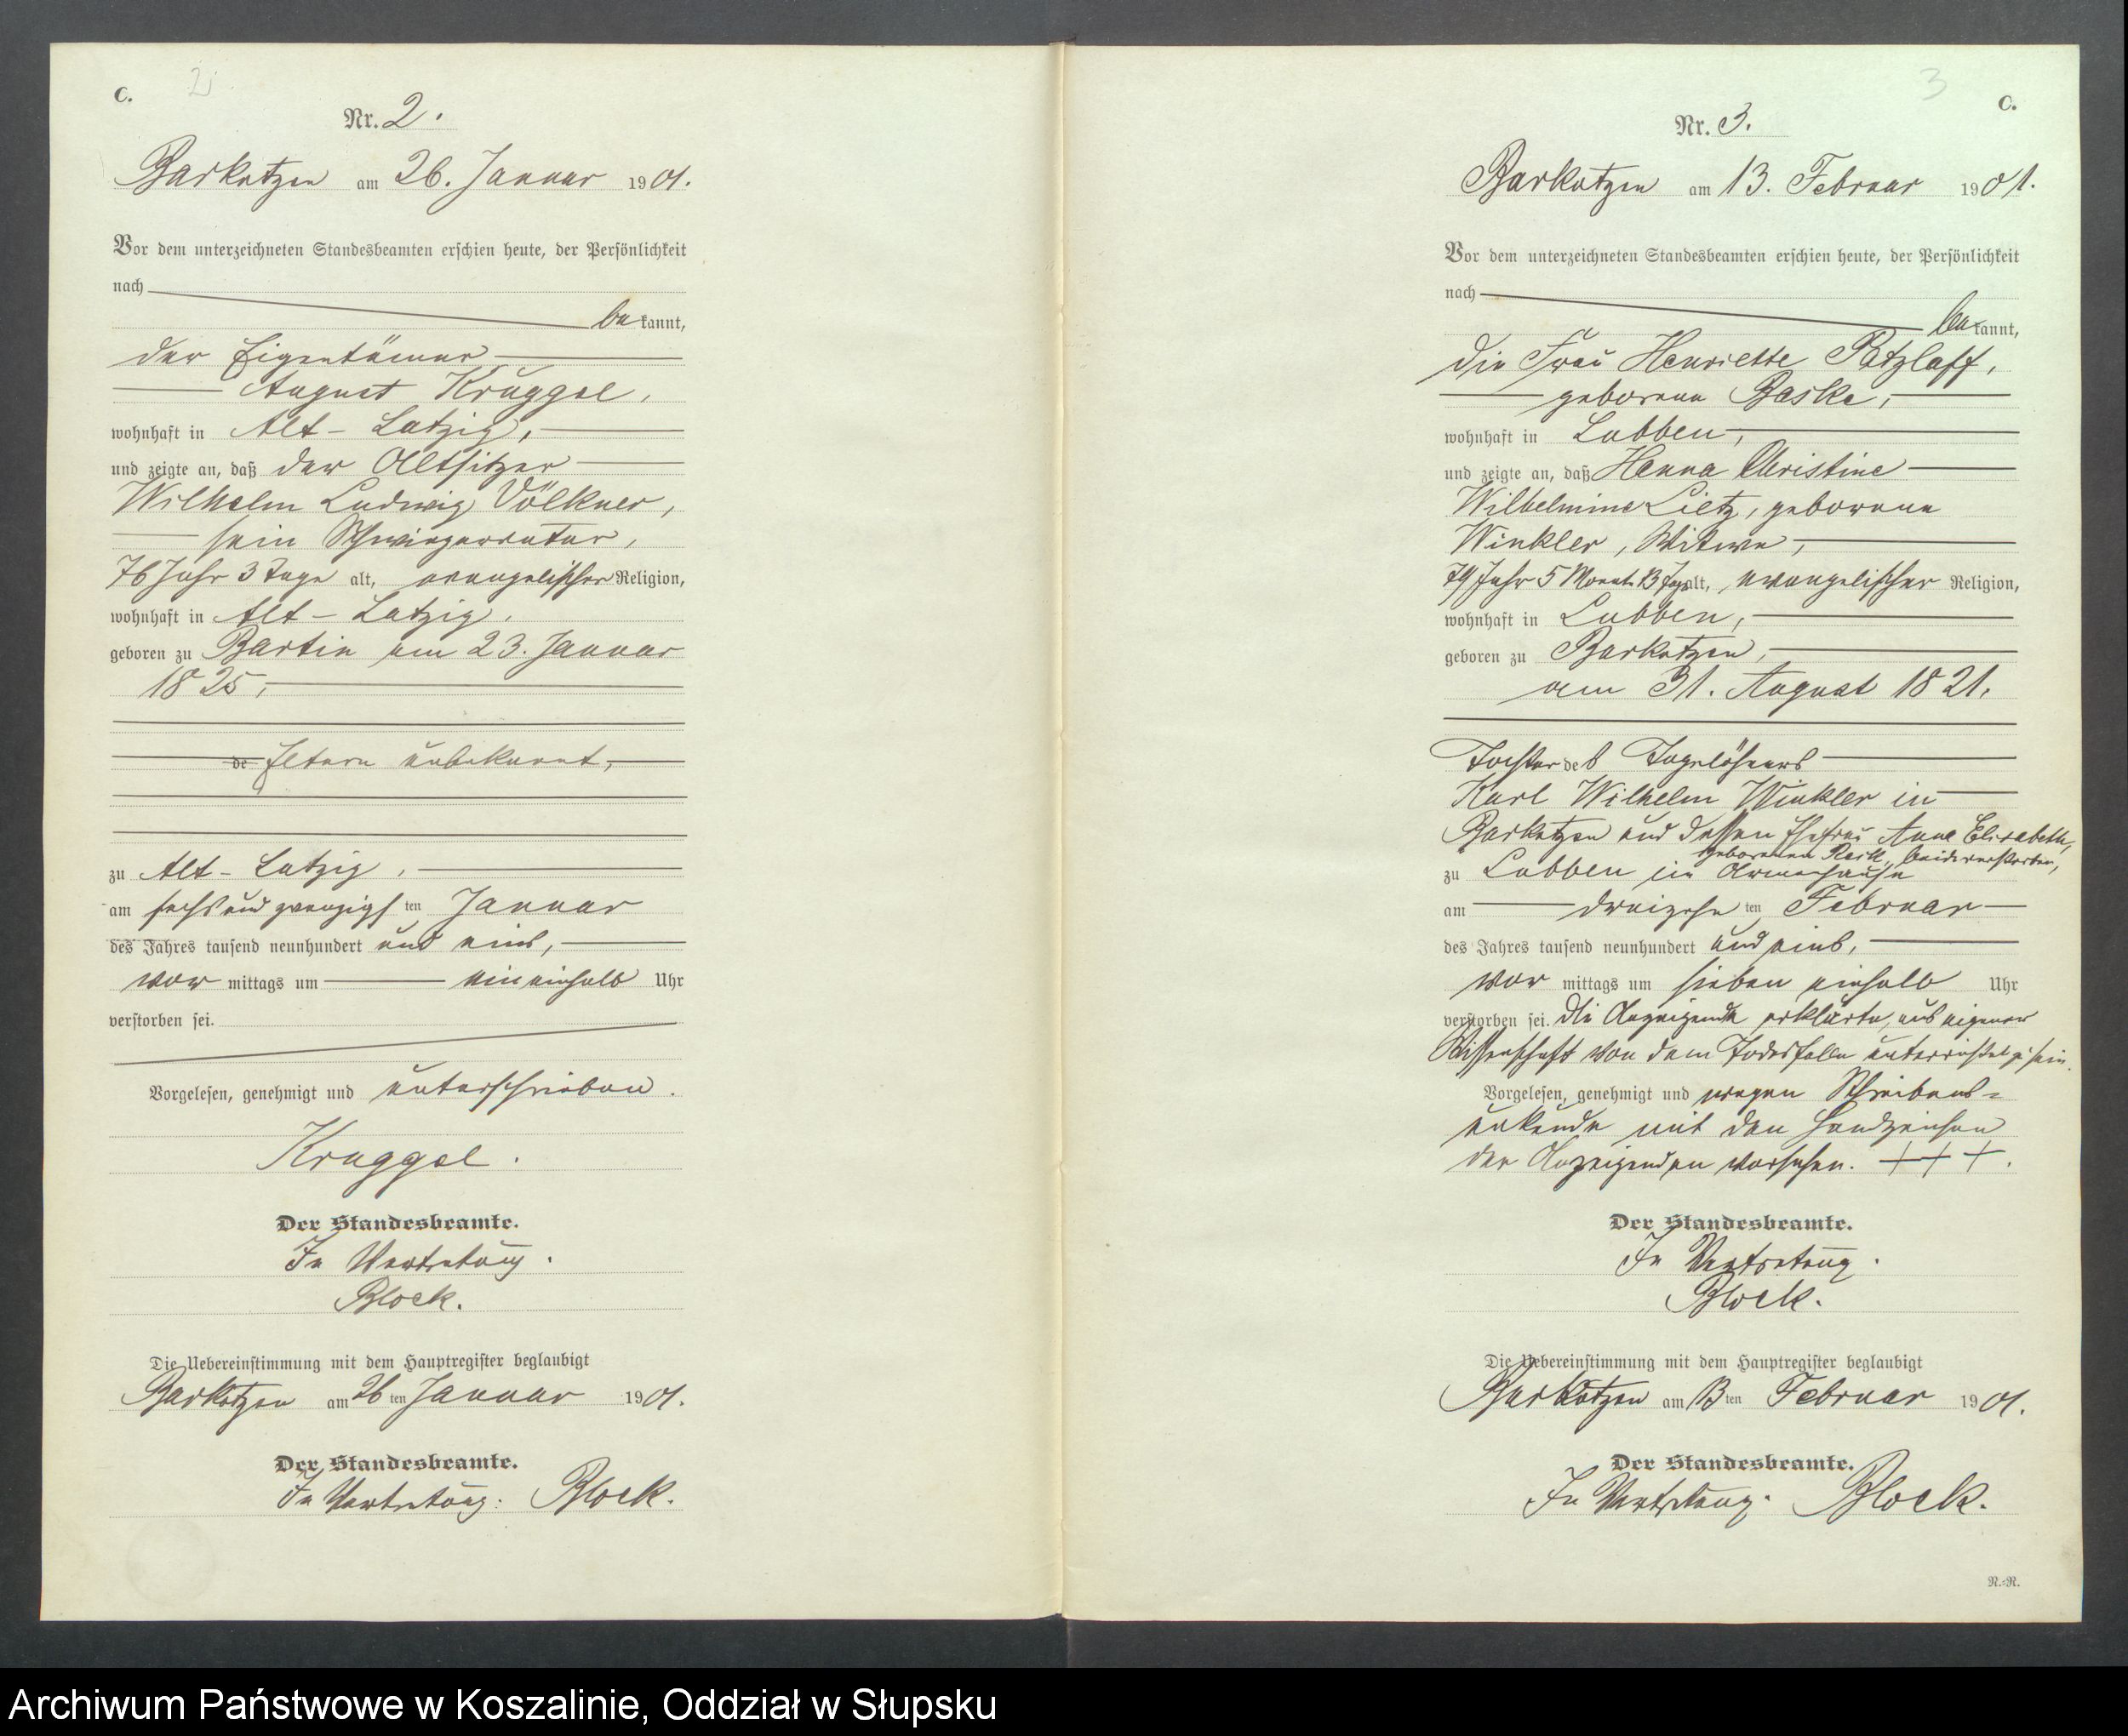 C.
2
Nr. 2.
Barkotzen am 26. Januar 1901.
Vor dem unterzeichneten Standesbeamten erschien heute, der Persönlichkeit
nach
bekannt,
der Eigentümer
August Kruggel,
wohnhaft in Alt-Latzig,
und zeigte an, daß der Altsitzer
Wilhelm Ludwig Völkner,
sein Schwiegervater,
76 Jahr 3 Tage alt, evangelischer Religion,
wohnhaft in Alt-Latzig,
geboren zu Bartin am 23. Januar
1825,
de Eltern unbekannt,
zu Alt-Latzig,
am sechsundzwanzigsten Januar
des Jahres tausend neunhundert und eins,
vor mittags um ein einhalb Uhr
verstorben sei.
Vorgelesen, genehmigt und unterschrieben.
Kruggel.
Der Standesbeamte.
In Vertretung.
Block.
Die Uebereinstimmung mit dem Hauptregister beglaubigt
Barkotzen am 26ten Januar 1901.
Der Standesbeamte.
In Vertretung: Block.
3
C.
Nr. 3.
Barkotzen am 13. Februar 1901.
Vor dem unterzeichneten Standesbeamten erschien heute, der Persönlichkeit
nach
bekannt,
die Frau Henriette Patzlaff,
geborene Baske,
wohnhaft in Lubben,
und zeigte an, daß Hanna Christine
Wilhelmine Lietz, geborene
Winkler, Witwe,
79 Jahr 5 Monat 13 Tage alt, evangelischer Religion,
wohnhaft in Lubben,
geboren zu Barkotzen,
am 31. August 1821.
Tochter des Tagelöhners
Karl Wilhelm Winkler in
Barkotzen und dessen Ehefrau Anna Elisabeth,
geborenen beide verstorben,
zu Lubben im Armenhause
am dreizehnten Februar
des Jahres tausend neunhundert und eins,
vor mittags um sieben einhalb Uhr
verstorben sei. Die Anzeigende erklärte, aus eigener
Wissenschaft von dem Todesfalle unterrichtet z. sein.
Vorgelesen, genehmigt und wegen Schreibens-
unkunde mit den Handzeichen
der Anzeigenden versehen. + + +.
Der Standesbeamte.
In Vertretung.
Block.
Die Uebereinstimmung mit dem Hauptregister beglaubigt
Barkotzen am 13ten Februar 1901.
Der Standesbeamte.
In Vertretung. Block.
N.=N.
Archiwum Państwowe w Koszalinie, Oddział w Słupsku